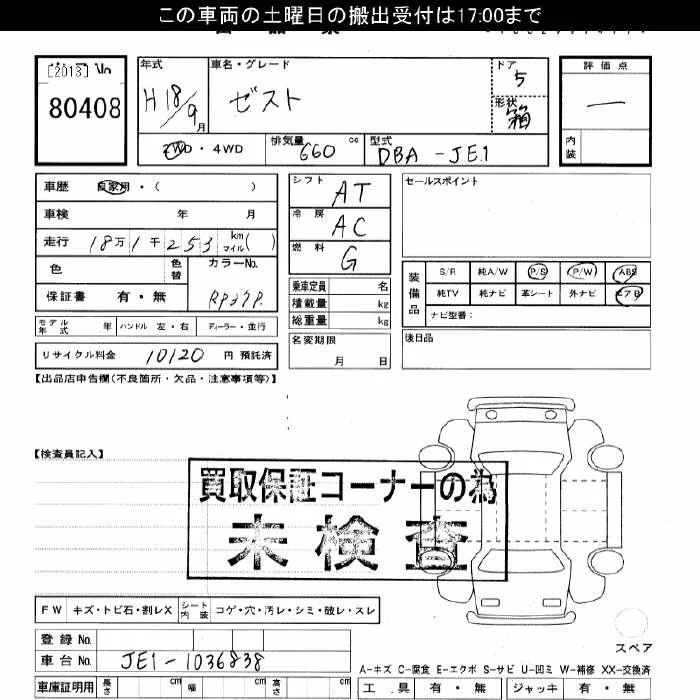 この車両の土曜日の搬出受付は17:00まで
[2013] No
80408
年式 H18/9月
車名・グレード ゼスト
ドア 5
形状 箱
評価点 —
内装
2WD・4WD
排気量 660 cc
型式 DBA-JE1
車歴 自家用・( )
車検 年 月
走行 18万1千253 km マイル ( )
色 色替 カラーNo.
保証書 有・無 RP37P
モデル年式 年 ハンドル 左・右 ディーラー・並行
リサイクル料金 10120 円 預託済
シフト AT
冷房 AC
燃料 G
乗車定員 名
積載量 kg
総重量 kg
名変期限 月 日
セールスポイント
装備品
S/R 純A/W P/S P/W ABS
純TV 純ナビ 革シート 外ナビ エアB
ナビ型番:
後日品
【出品店申告欄(不良箇所・欠品・注意事項等)】
【検査員記入】
買取保証コーナーの為
未検査
FW キズ・トビ石・割レX シート内装 コゲ・穴・汚レ・シミ・破レ・スレ
スペア
登録No.
車台No. JE1-1036838
A-キズ C-腐食 E-エクボ S-サビ U-凹ミ W-補修 XX-交換済
車庫証明用 長さ cm 幅 cm 高さ cm
工具 有・無 ジャッキ 有・無